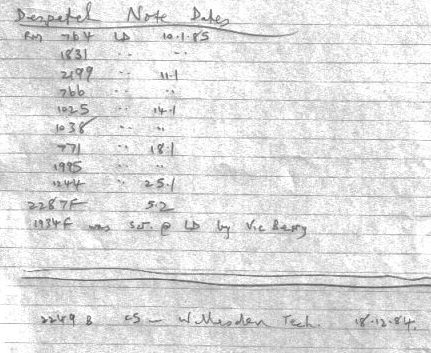 Despatch Note Dates
RM 764 LD 10.1.85
1831 " "
2199 " 11.1
766 " "
1025 " 14.1
1038 " "
771 " 18.1
1995 " "
1244 " 25.1
2287F 5.2
1934F was @ LD by Vic Berry
2249 B CS - Willesden Tech. 18.12.84.